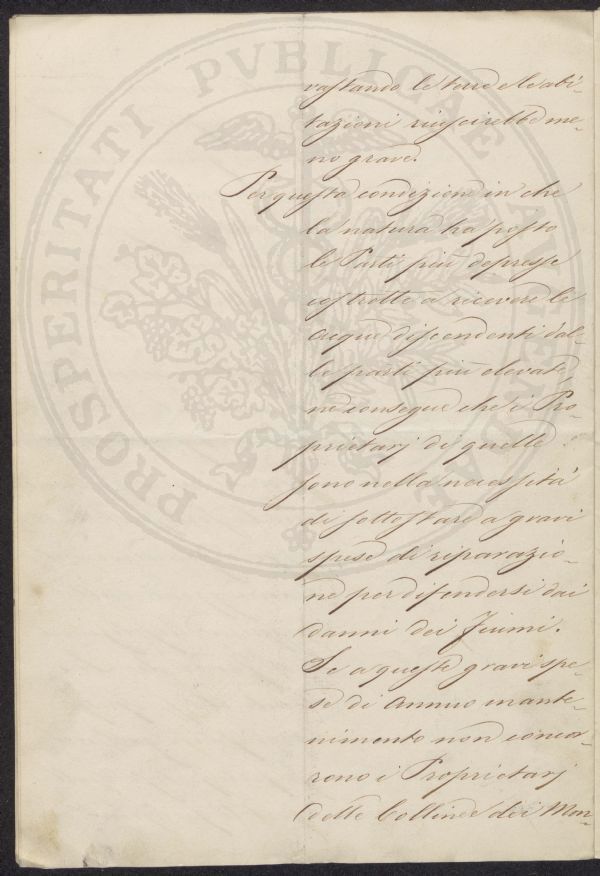 PROSPERITATI PVBLICAE AVGENDAE
vastando le terre e le abi-
tazioni riuscirebbe me-
no grave.
Per questa condizione in che
la natura ha posto
le Parti più depresse
costrette a ricevere le
acque discendenti dal-
le parti più elevate,
ne consegue che i Pro-
prietarj di quelle
sono nella necessità
di sottostare a gravi
spese di riparazio-
ne per difendersi dai
danni dei Fiumi.
Se a queste gravi spe-
se di annuo mante-
nimento non concor-
rono i Proprietarj
delle Colline e dei Mon-